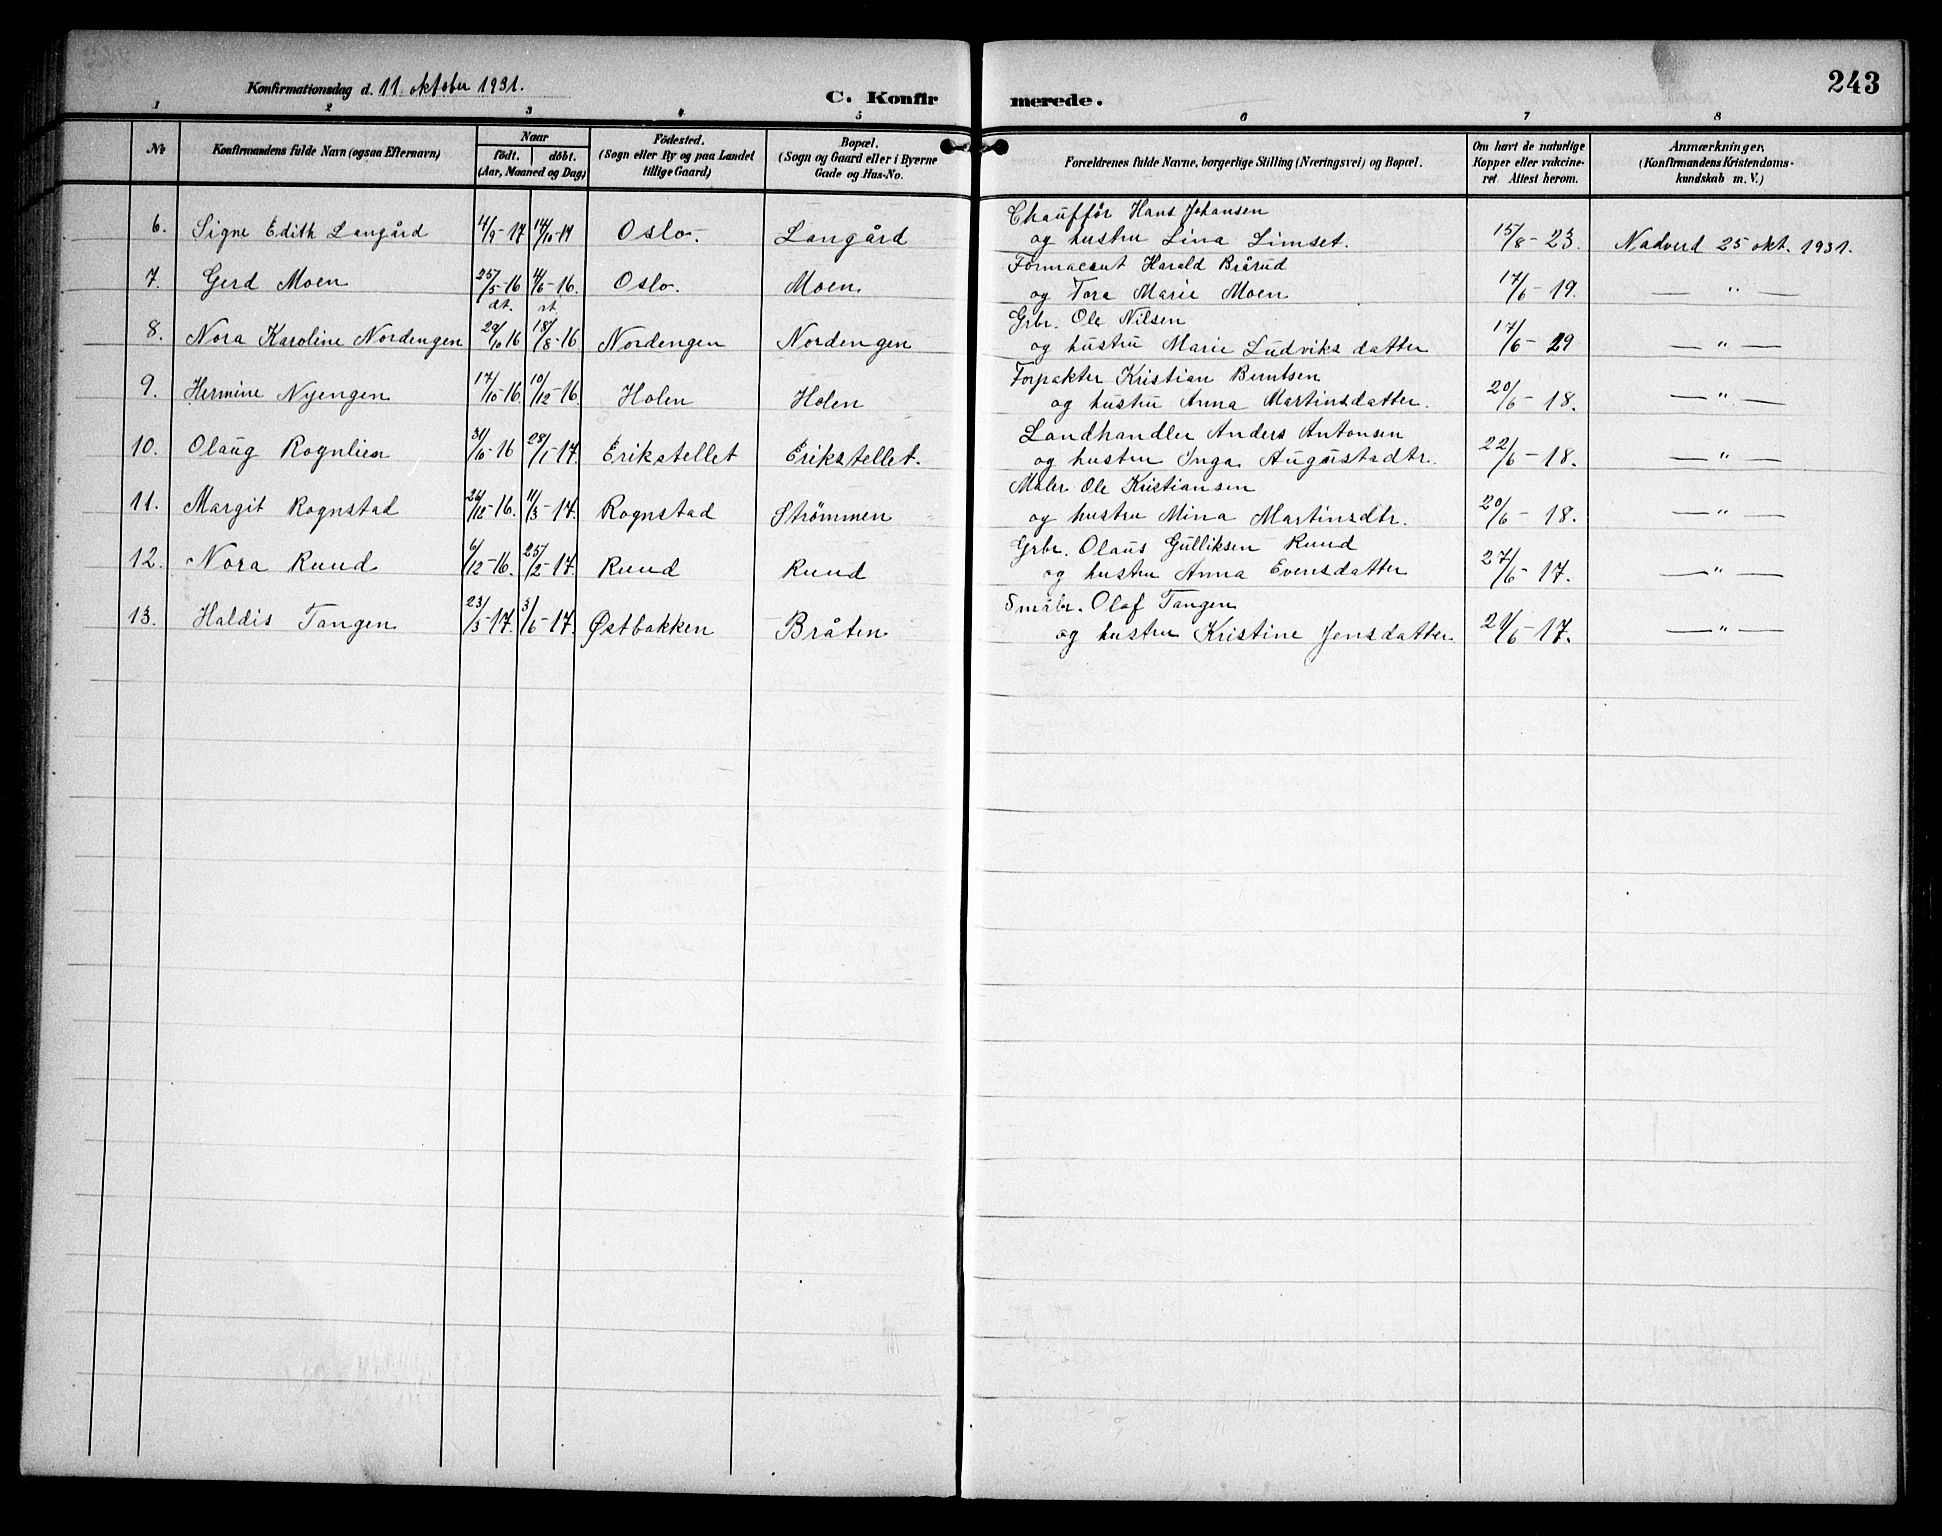 Konfirmationsdag d. 11. oktober 1931.
C. Konfirmerede.
243
1 2 3 4 5 6 7 8
No
Konfirmandens fulde Navn (ogsaa Efternavn)
Naar
födt. döbt.
(Aar, Maaned og Dag)
Födested.
(Sogn eller By og paa Landet
tillige Gaard)
Bopæl.
(Sogn og Gaard eller i Byerne
Gade og Hus-No.
Forældrenes fulde Navne, borgerlige Stilling (Næringsvei) og Bopæl.
Om havt de naturlige
Kopper eller vakcine-
ret. Attest herom.
Anmærkninger,
(Konfirmandens Kristendoms-
kundskab m. V.)
Chauffør Hans Johansen
6. Signe Edith Langård 11/9-17 14/10-17 Oslo. Langård og hustru Lina Limset. 15/8-23. Nadverd 25 okt. 1931.
Harald Brårud
7. Gerd Moen 25/5-16 4/6-16. Oslo. Moen og Tora Marie Moen 17/6-19. — " —
Grbr. Ole Nilsen
8. Nora Karoline Nordengen 29/10 16 18/8-16 Nordengen Nordengen og hustru Marie Ludviksdatter 17/6-29 — " —
Forpakter Kristian Berntsen
9. Hermine Nyengen 17/10-16. 10/12-16. Holen Holen og hustru Anna Martinsdatter. 20/6-18. — " —
Landhandler Anders Antonsen
10. Olaug Rognlien 31/10-16 28/1-17. Erikstellet Erikstellet. og hustru Inga Augustadtr. 22/6-18. — " —
Maler Ole Kristiansen
11. Margit Rognstad 26/12-16. 11/3-17. Rognstad Strømmen og hustru Mina Martinsdtr. 20/6-18. — " —
Grbr. Olaus Gulliksen Ruud
12. Nora Ruud 6/12-16. 25/2-17. Ruud Ruud og hustru Anna Evensdatter 27/6-17. — " —
Småbr. Olaf Tangen
13. Haldis Tangen 23/3-17. 3/6-17. Østbakken Bråten og hustru Kristine Jensdatter 29/6-17. — " —